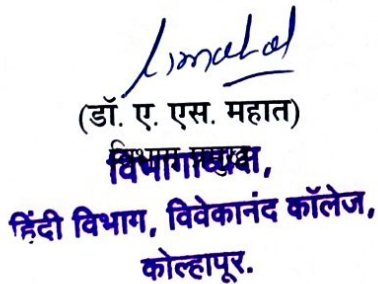 (डॉ. ए. एस. महात)
विभाग प्रमुख
विभागाध्यक्ष,
हिंदी विभाग, विवेकानंद कॉलेज,
कोल्हापूर.